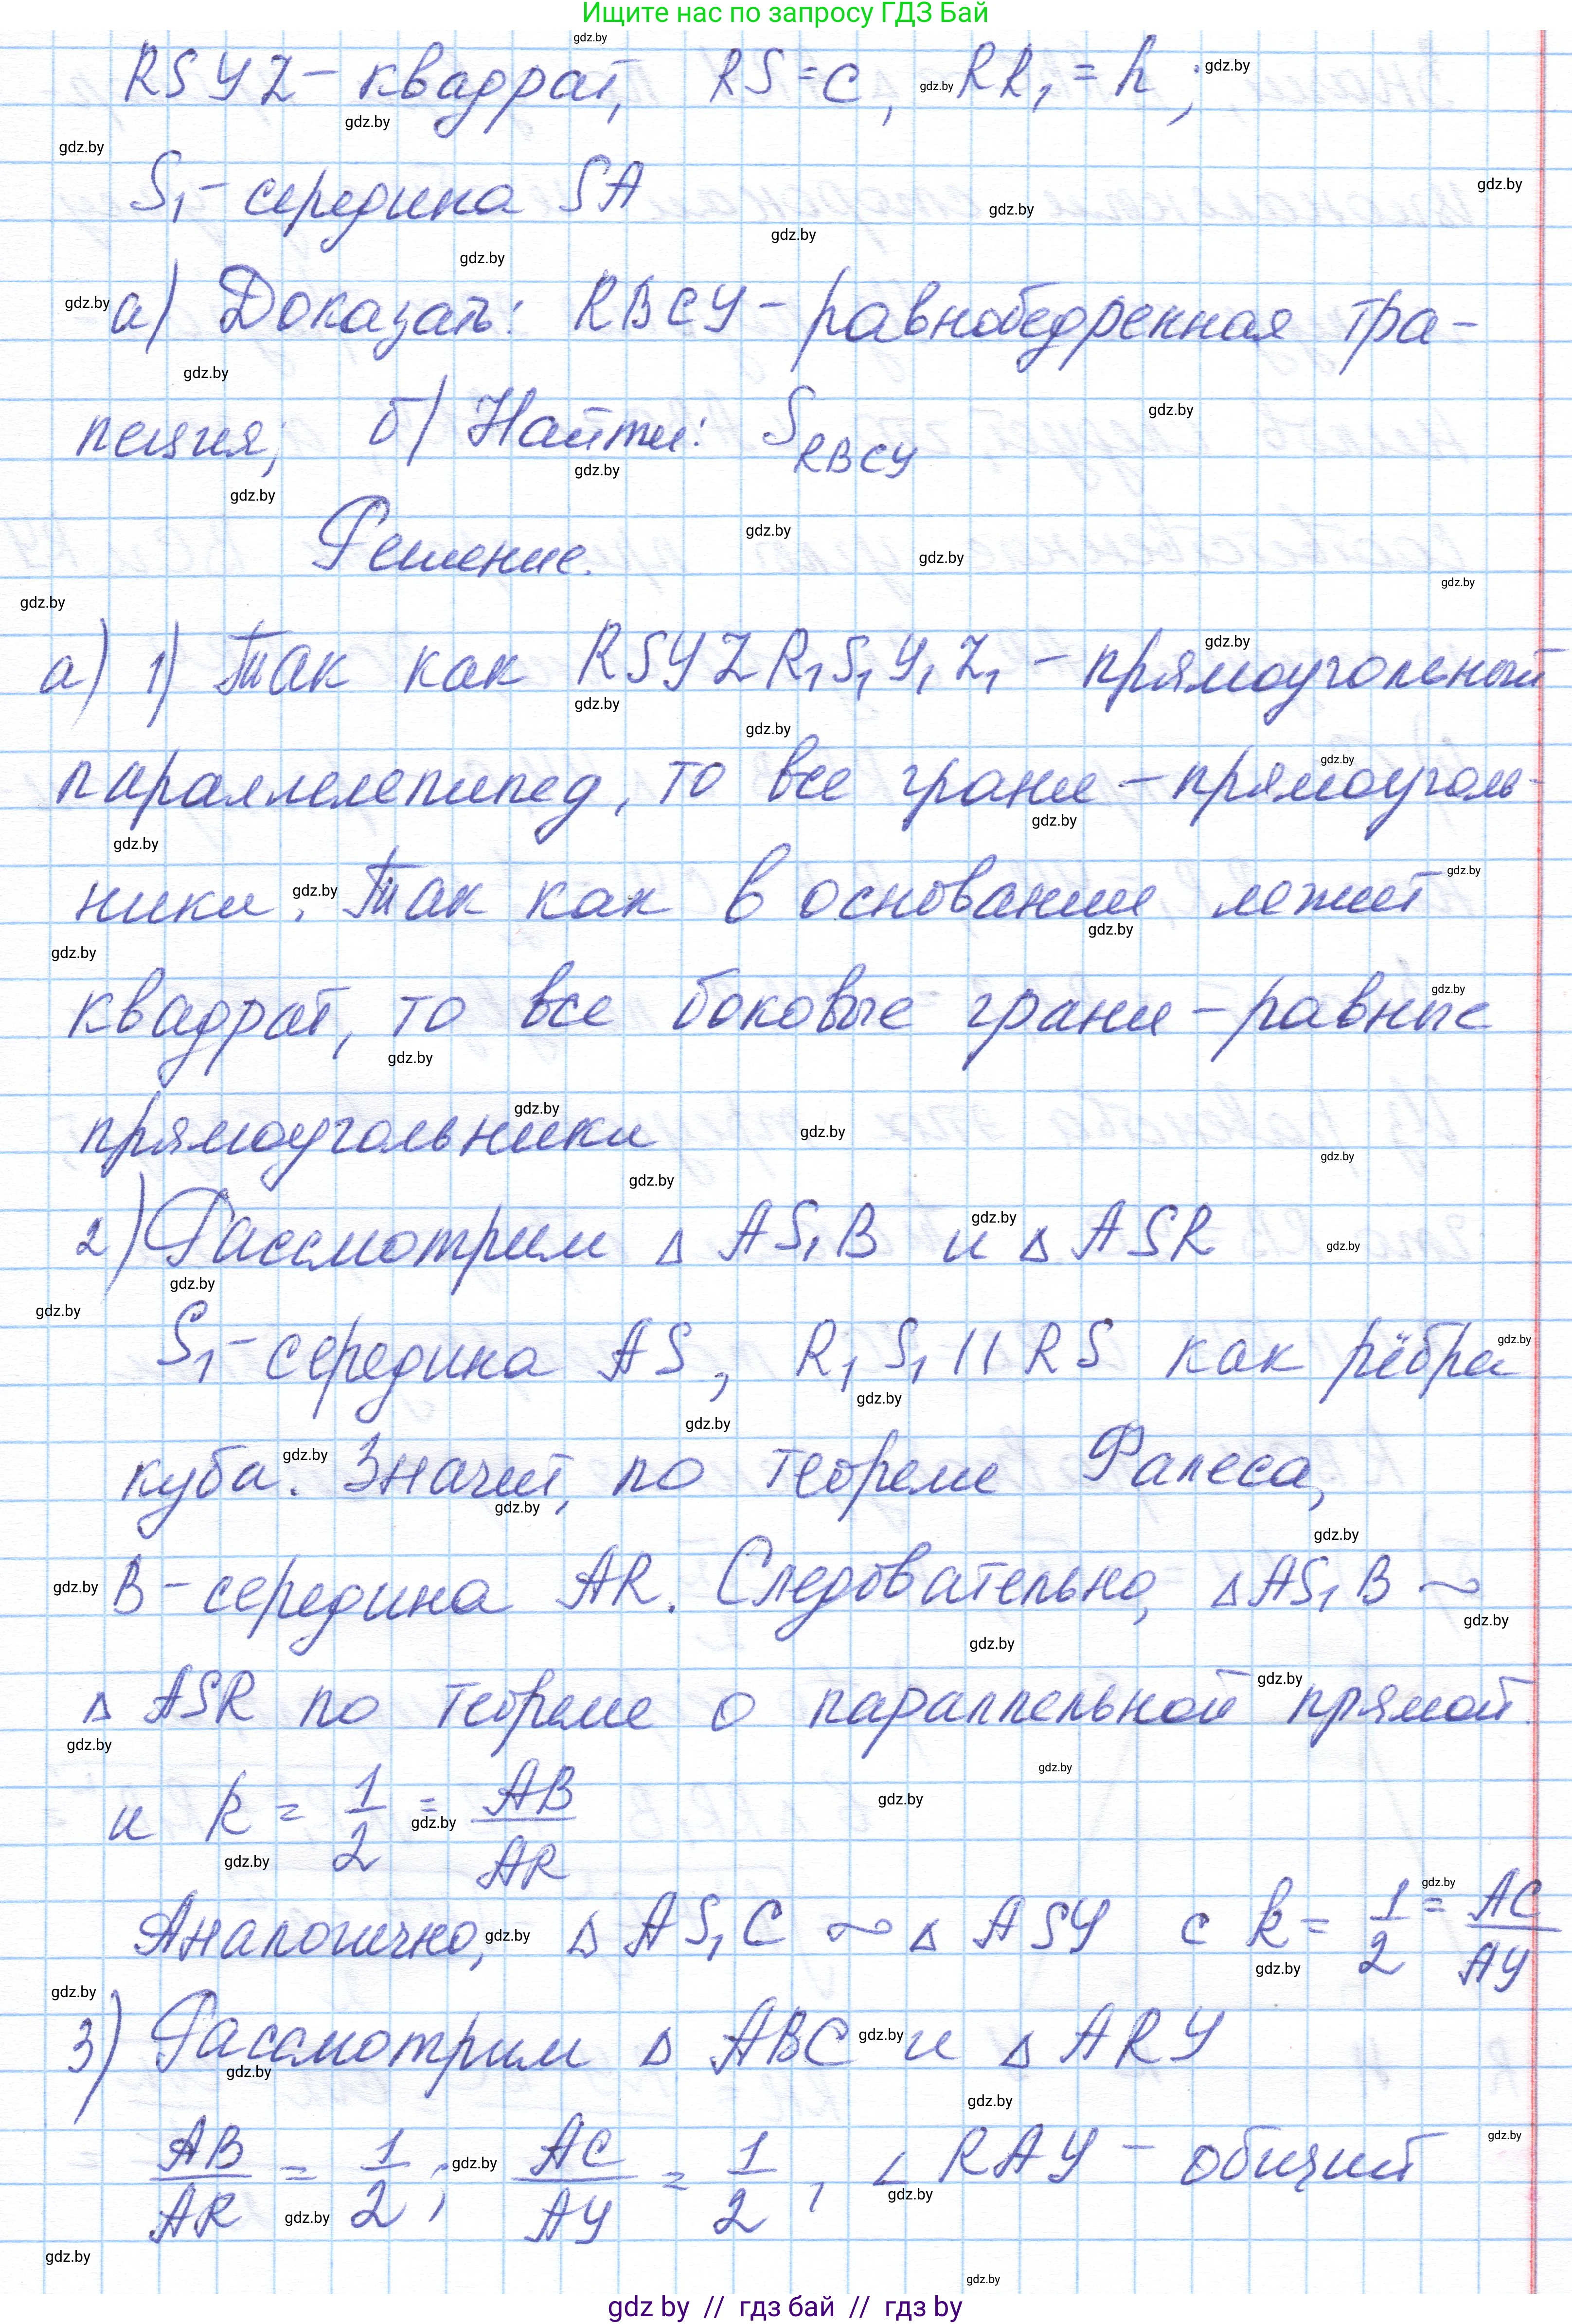 Ищите нас по запросу ГДЗ Бай
RSYZ – квадрат, RS = c, RR₁ = h;
S₁ – середина SA
а) Доказать: RBCY – равнобедренная тра-
пеция; б) Найти: S_RBCY
Решение.
а) 1) Так как RSYZR₁S₁Y₁Z₁ – прямоугольный
параллелепипед, то все грани – прямоуголь-
ники. Так как в основании лежит
квадрат, то все боковые грани – равные
прямоугольники
2) Рассмотрим Δ AS₁B и Δ ASR
S₁ – середина AS, R₁S₁ || RS как рёбра
куба. Значит, по теореме Фалеса,
B – середина AR. Следовательно, Δ AS₁B ~
Δ ASR по теореме о параллельной прямой
и k = 1/2 = AB/AR
Аналогично, Δ AS₁C ~ Δ ASY с k = 1/2 = AC/AY
3) Рассмотрим Δ ABC и Δ ARY
AB/AR = 1/2; AC/AY = 1/2, ∠ RAY – общий
gdz by // гдз бай // гдз by